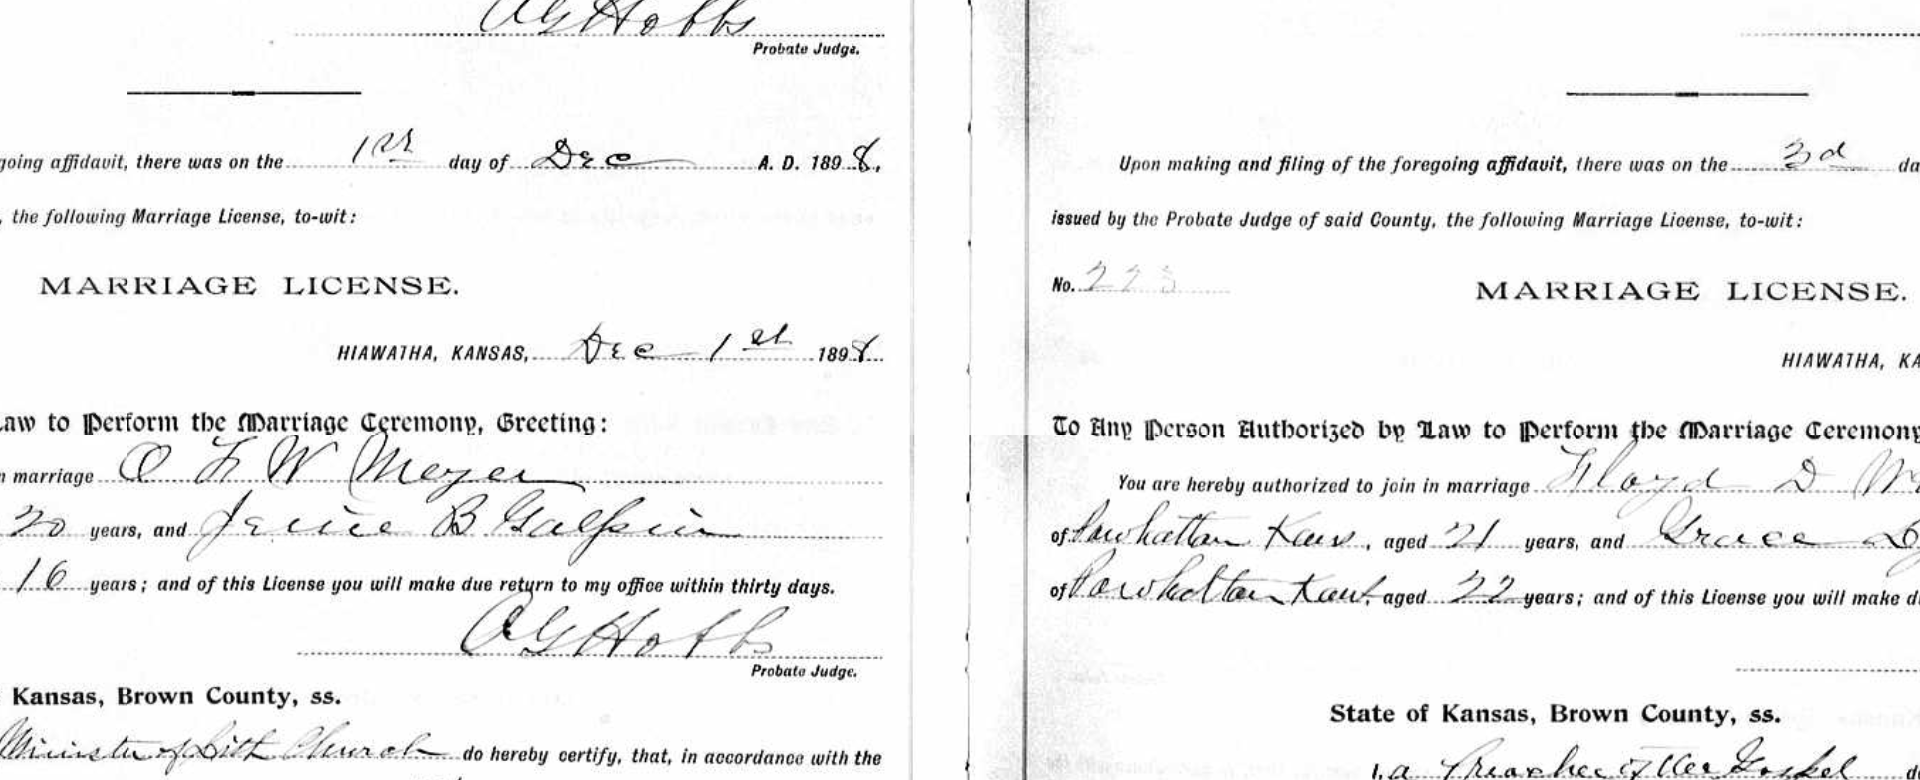 A G Hobbs
Probate Judge.
going affidavit, there was on the 1st day of Dec A. D. 1898,
, the following Marriage License, to-wit:
MARRIAGE LICENSE.
HIAWATHA, KANSAS, Dec 1st 1898
Law to Perform the Marriage Ceremony, Greeting:
n marriage O F W Meyer
20 years, and Jennie B Galpin
16 years; and of this License you will make due return to my office within thirty days.
A G Hobbs
Probate Judge.
Kansas, Brown County, ss.
Minister of Luth Church do hereby certify, that, in accordance with the
Upon making and filing of the foregoing affidavit, there was on the 3d da
issued by the Probate Judge of said County, the following Marriage License, to-wit:
No. 223
MARRIAGE LICENSE.
HIAWATHA, KA
To Any Person Authorized by Law to Perform the Marriage Ceremony
You are hereby authorized to join in marriage Floyd D
of Powhattan Kans, aged 21 years, and Grace
of Powhattan Kans, aged 22 years; and of this License you will make d
State of Kansas, Brown County, ss.
I, a Preacher of the Gospel d